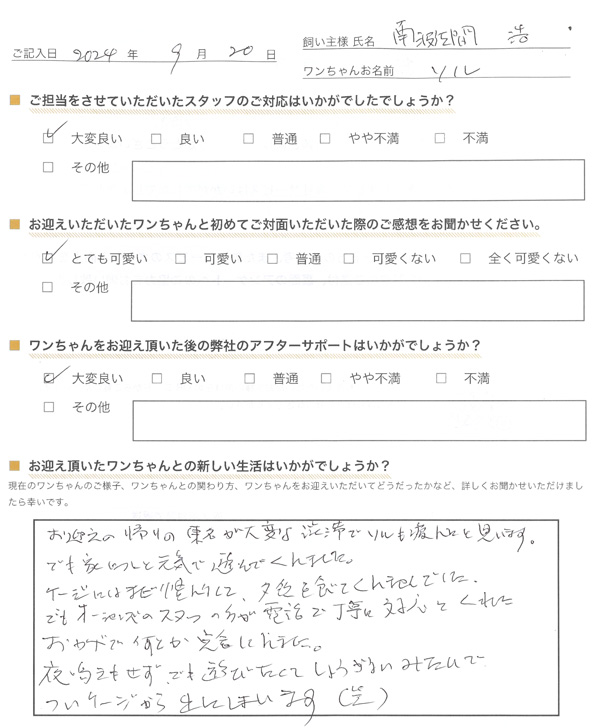 ご記入日 2024 年 9 月 20 日
飼い主様 氏名 南波左間 浩
ワンちゃんお名前 ソル
ご担当をさせていただいたスタッフのご対応はいかがでしたでしょうか？
大変良い 良い 普通 やや不満 不満
その他
お迎えいただいたワンちゃんと初めてご対面いただいた際のご感想をお聞かせください。
とても可愛い 可愛い 普通 可愛くない 全く可愛くない
その他
ワンちゃんをお迎え頂いた後の弊社のアフターサポートはいかがでしょうか？
大変良い 良い 普通 やや不満 不満
その他
お迎え頂いたワンちゃんとの新しい生活はいかがでしょうか？
現在のワンちゃんのご様子、ワンちゃんとの関わり方、ワンちゃんをお迎えいただいてどうだったかなど、詳しくお聞かせいただけまし
たら幸いです。
お迎えの帰りの東名が大変な渋滞でソルも疲れたと思います。
でも家につくと元気で遊んでくれました。
ケージにはまだ慣れなくて、夕飯を食べてくれませんでした。
でもオーシャンズのスタッフの方が電話で丁寧に対応してくれた
おかげで何とか完食しました。
夜鳴きもせず、でも遊びたくてしょうがないみたいで
ついケージから出してしまいます（笑）